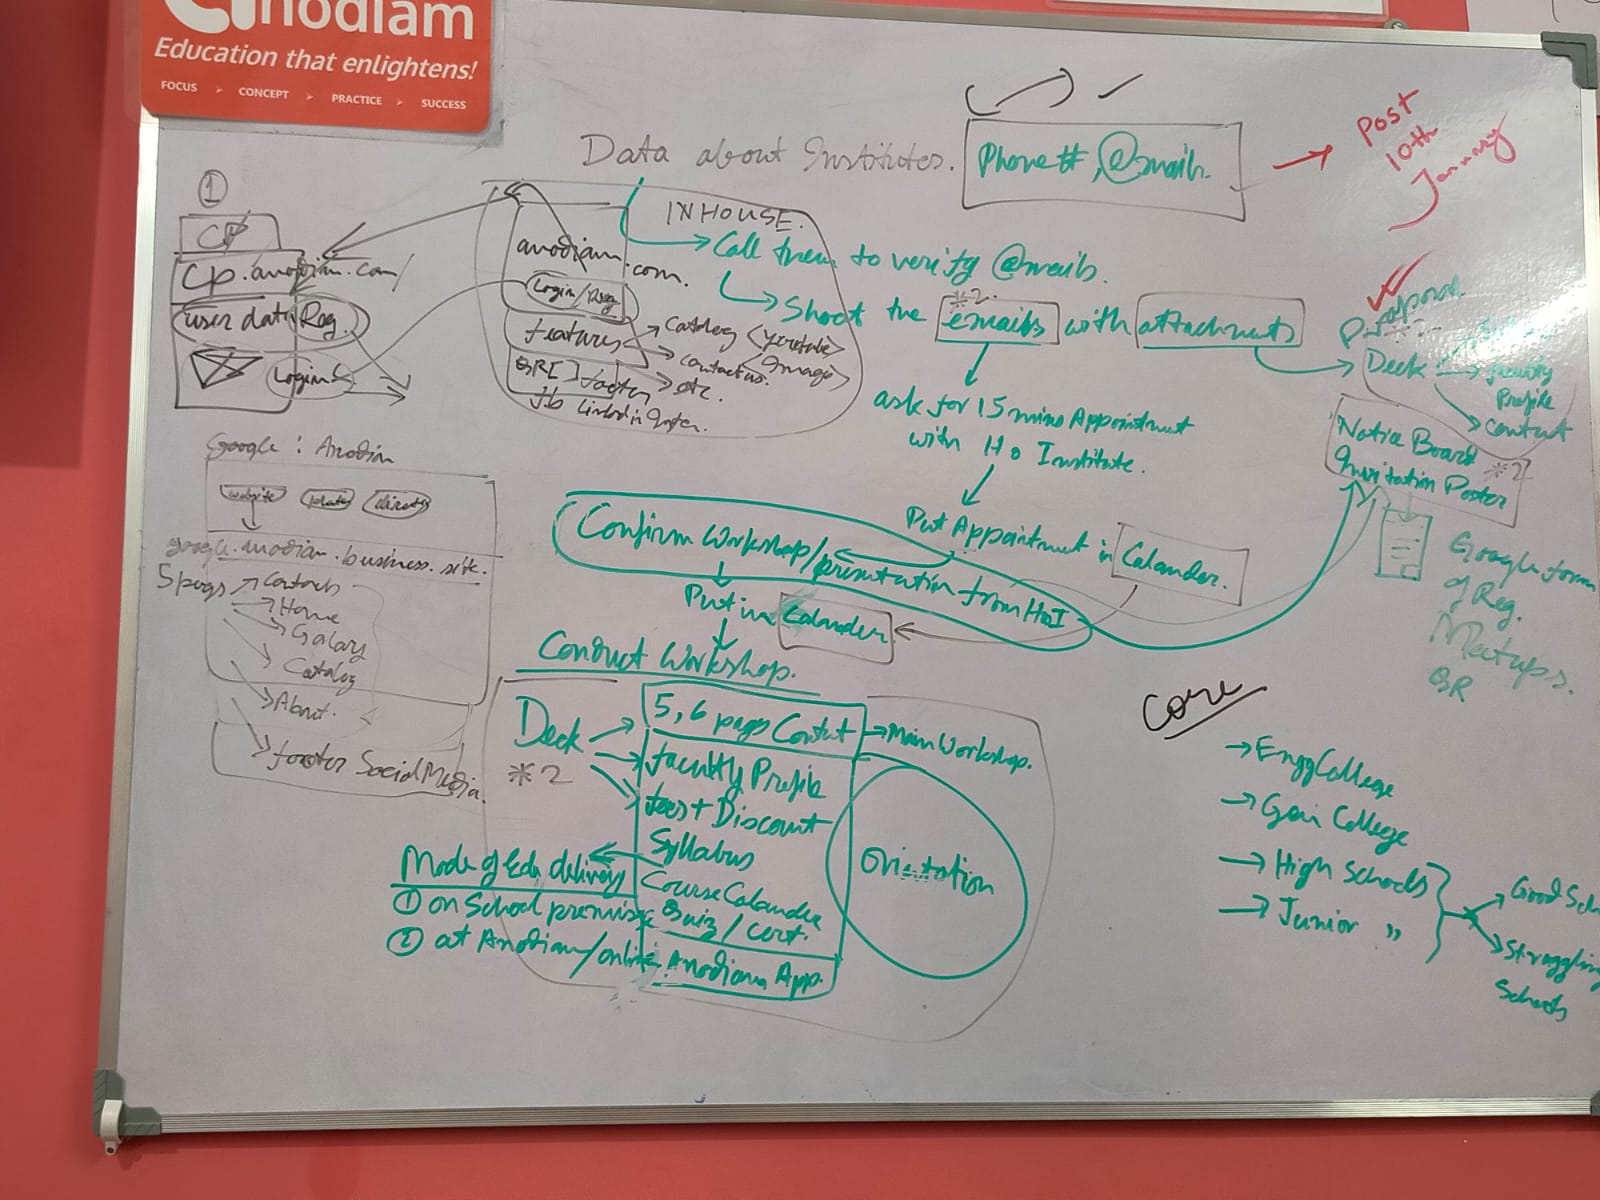 nodiam
Education that enlightens!
FOCUS > CONCEPT > PRACTICE > SUCCESS
Data about Institutes.
Phone#, @mails.
Post
10th
January
1
CP
cp.anodiam.com/
user data Reg.
Login
INHOUSE.
anodiam.com.
Login/Reg
features
Catalog
contact us.
etc.
youtube
Images
footer
fb Linkedin Inster.
Call them to verify @mails.
Shoot the emails with attachments
*2
ask for 15 mins Appointment
with Ho Institute.
Put Appointment in Calander.
Proposal
Deck
faculty
Profile
content
Notice Board
Invitation Poster
*2
Google form
of Reg.
Meetups.
QR
Google : Anodiam
website
google.anodiam.business.site.
5 pages
Contacts
Home
Galary
Catalog
About.
footer Social Media.
Confirm Workshop/presentation from HoI
Put in Calander
Conduct Workshop.
Deck
*2
5, 6 pages Content
Main Workshop.
faculty Profile
fees + Discount
Syllabus
Course Calander
Quiz / Cert.
Anodiam App.
Orientation
Mode of Edu delivery
1 on School premise
2 at Anodiam/online
Core
Engg College
Gen College
High Schools
Junior "
Good Sch
Struggling
Schools